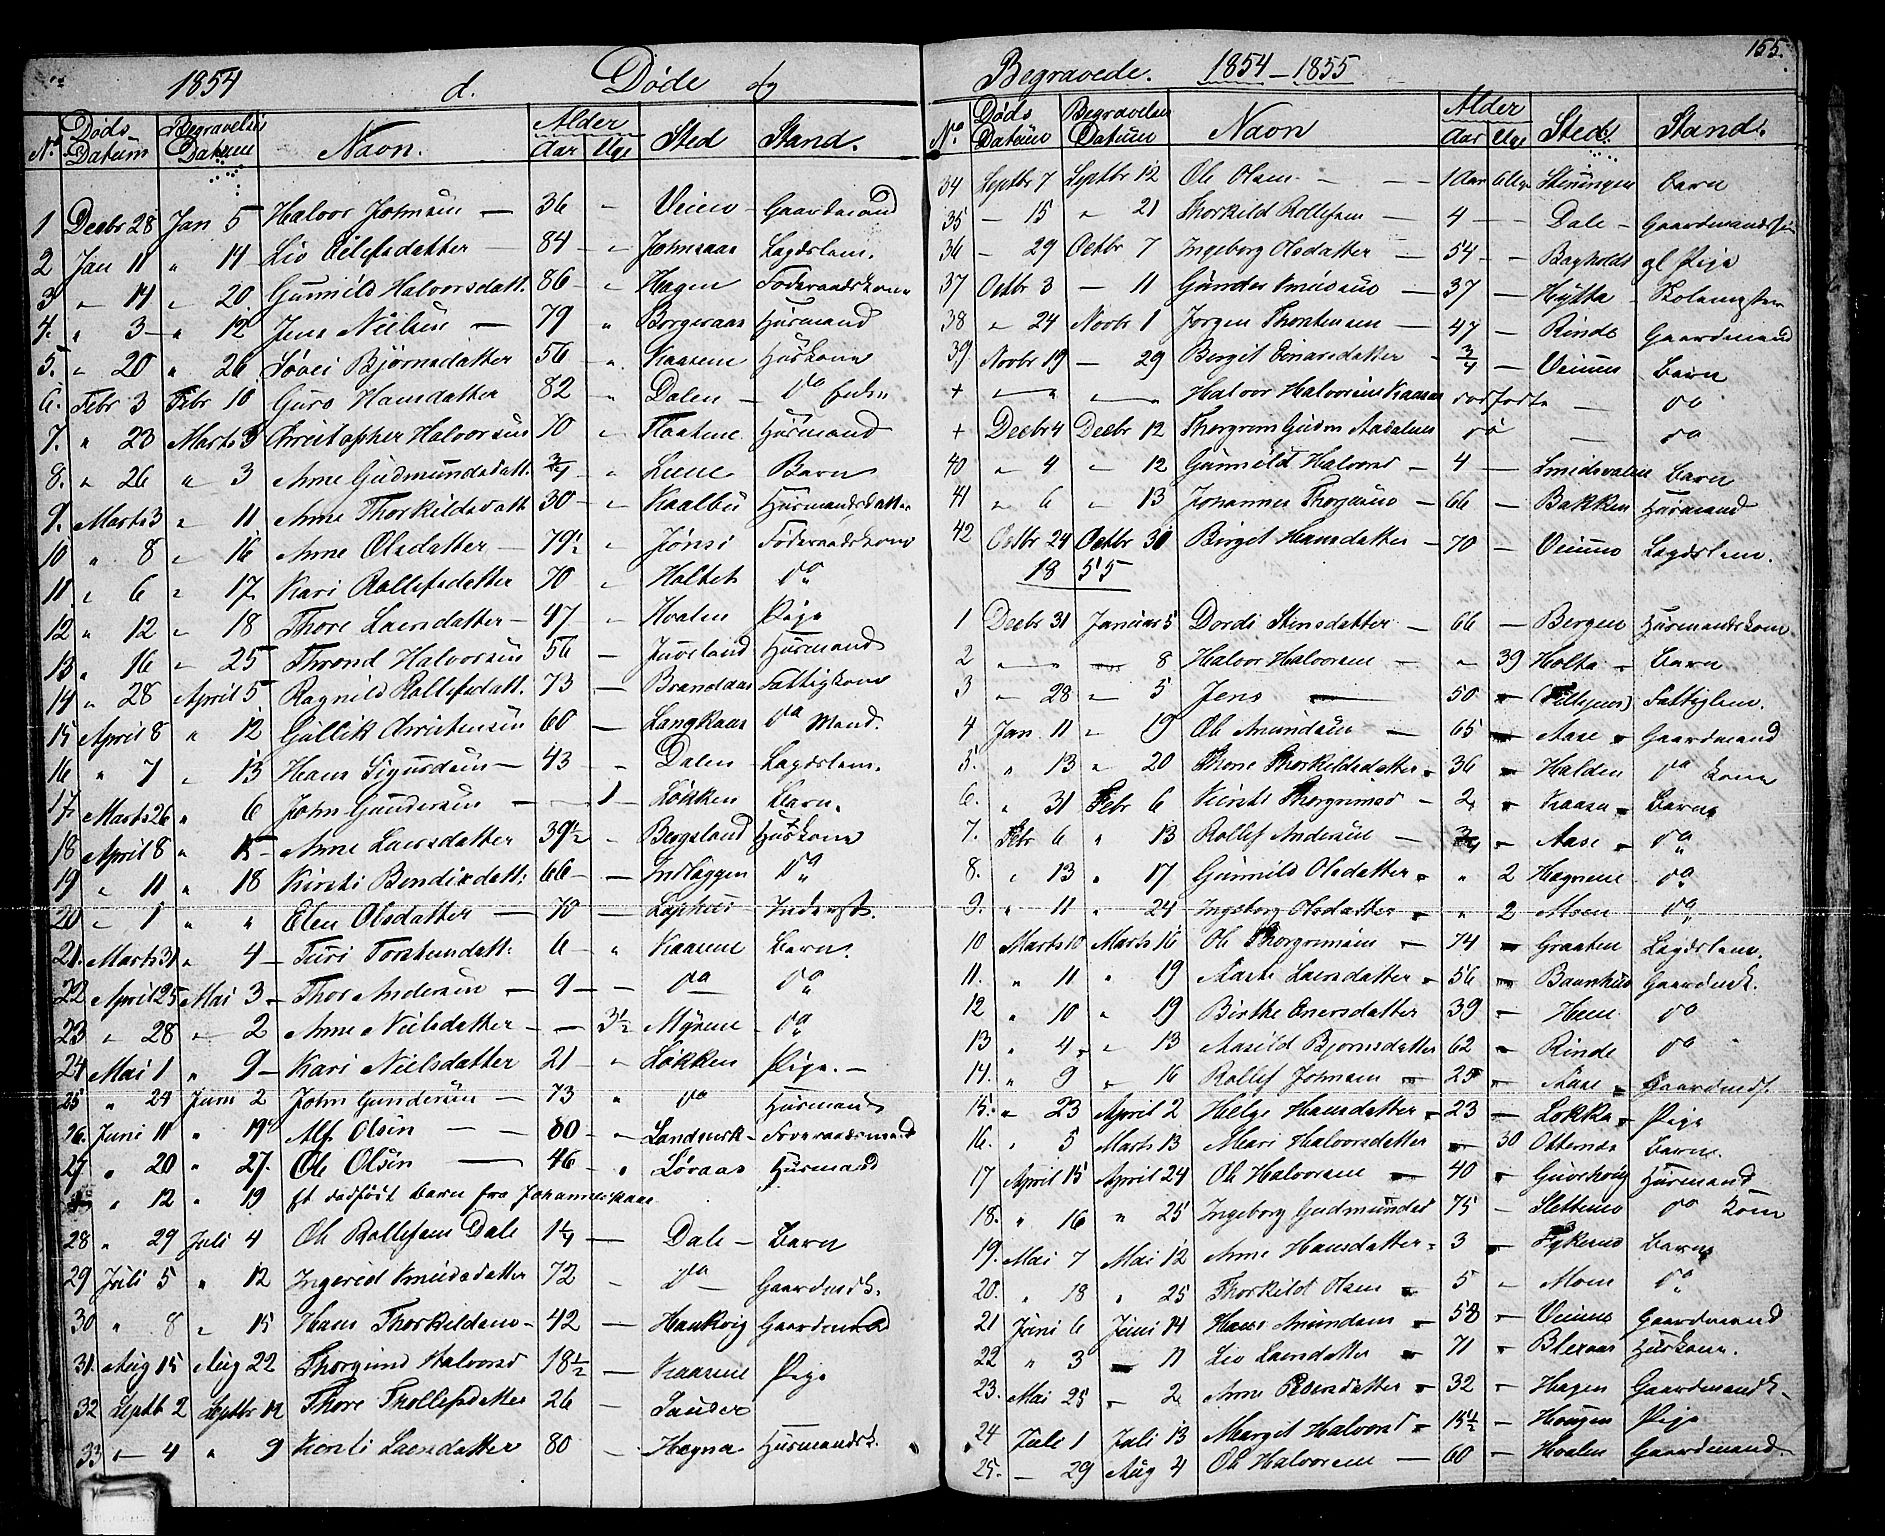 1854 d. Døde og
No Døds Datum Begravelses Datum Navn. Alder Aar Uge Sted Stand.
1 Decbr 28 Jan 5 Halvor Johnsen — 36 - Veien - Gaardmand
2 Jan 11 " 14 Liv Eilefsdatter 84 - " Johnsaas Lægdslem.
3 " 14 " 20 Gunnild Halvorsdatt. 86 - " Hagen Føderaadskone
4. " 3 - " 12 Jens Nielsen — 79 " Borgeraas Huusmand
5. " 20 " 26 Søvei Bjørnsdatter 56 " Kaasene Huuskone
6. Febr 3 Febr 10 Guro Hansdatter 82 " Dalen - do Enke
7. " 23 Marts 3 Christopher Halvorsen 70 " Flaatene Huusmand
8. " 26 " 3 Anne Gudmundsdatt. 3/4 " Lene Barn
9. Marts 3 " 11 Anne Thorkildsdatt 30 - " Kaalbu Huusmandsdatter
10 " 8 " 16 Anne Olsdatter - 79½ " Jønsi Føderaadskone
11 " 6 " 17 Kari Rollefsdatter 70 " Haltet do
12 " 12 " 18 Thore Laersdatter - 47 " Hvalen Pige
13 " 16 " 25 Thrond Halvorsen 56 — Juveland Huusmand
14 " 28 April 5 Ragnild Rollefsdatt. 73 — Brandaas Fattigkone
15 April 8 " 12 Gullik Christensen 60 — Langkaas do Mand.
16 " 7 " 13 Hans Sigurdsen — 43 - Dalen - Lægdslem.
17 Marts 26 " 6 John Gundersen - — 1 - Løkken Barn.
18 April 8 " 15 - Anne Laersdatter 39½ " Bergsland Huuskone
19 " 11 " 18 Kirsti Bendixdatt: 66 — Indlæggen do
20 " 1 " " Elen Olsdatter — 70 — Inderst.
21. Marts 31 " 4 - Turi Torstensdatt: 6 - " Kaasene Barn.
22 April 25 Mai 3 - Thor Andersen - 9 — do do
23 " 28 " 2 Anne Nielsdatter - — 3½ Myrene do
24 Mai 1 " 9 - Kari Nielsdatter 21 " Løkken Pige. -
25 " 24 Juni 2 John Gundersen - 73 " do Huusmand
26. Juni 11 " 19 Alf Olsen - - 80 - " Landsverk - Foderaadsmand
27 " 20 " 27. Ole Olsen — 46 " Løvaas Huusmand
" 12 " 19 Et dødfødt barn fra Johanneskaas
28 " 29 Juli 4 Ole Rollefsen Dale 1¼ — Dale - Barn
29 Juli 5 " 12 Ingerid Knudsdatter 72 - do Gaardmdk.
30 " 8 " 15 Hans Thorkildsen - 42 — Haukvig Gaardmand
31. Aug 15 Aug 22 Thorgund Halvorsd 18½ — Kaasene Pige
32 Septb 2 Septbr 12 Thore Thollefsdatter 26 - Sauder
33 " 4 " 9 Kirsti Laersdatter 80 Hægna Huusmandsk.
Begravede. 1854 – 1855 155.
No Døds Datum Begravelses Datum Navn Alder Aar Uge Sted: Stand.
34 Septbr 7 Septbr 12 Ole Olsen - - - 1 Aar 6 Uge barn
35 - 15 " 21 Thorkild Rollefsen — 4 — Dale - Gaardmandssøn
36 - 29 Octbr 7 Ingeborg Olsdatter — 54 - Bagholdt gl Pige
37 Octbr 3 — 11 Gunder Knudsen — 37 - Hytta -
38 " 24 Novbr 1 Jørgen Thorstensen — 47 - Rinde Gaardmand
39. Novbr 19 — 29 Bergit Einarsdatter - 3/4 - Veiunes Barn
+ — " — Halvor Halvorsen Kaasene dødfødte — do
+ Decbr 4 Decbr 12 Thorgrem Gudm Aadalenes do — do
40 " 4 " 12 Gunnild Halvorsd - 4 - Smidsvalen barn
41 " 6 " 13 Johannes Thorjusen — 66 — Bakken Huusmand
42 Octbr 24 Octbr 30 Birgit Hansdatter - 70 - Veiuno Lægdslem.
1855
1 Decbr 31 Januar 5 Dordi Stensdatter - 66 — Bergen Huusmandskone
2 — " 8 Halvor Halvorsen - " 39 Holta - barn
3 " 28 " 5 Jens — 50 - Fattiglem.
4 Jan 11 " 19 Ole Amundsen - 65 - Aase - Gaardmand
5. " 13 " 20 Thone Thorkildsdatter - 36 - Halden do kone
6. " 31 Febr 6 Kirsti Thorgrimsd - 2 - Kaasa - Barn
7. Febr 6 " 13 Rollef Andersen — 3/4 - Aase - do
8. " 13 " 17 Gunnild Olsdatter - " 2 Hægnene do
9. " 11 " 24 Ingeborg Olsdatter - " 2 Moen do
10 Marts 10 Marts 16 Ole Thorgrimsen - 74 - Graaten Lægdslem.
11. " 11 " 19 Aaste Laersdatter - 56 - Baunhus Gaardmk.
12 " 10 " 19 Birthe Enersdatter 39 - Heen do
13 " 4 " 13 Aasild Bjørnsdatter 62 - Rinde do
14. " 9 " 16 Rollef Johnsen - 25 - Aase - Gaardmds.
15. " 23 April 2 Helge Hansdatter - 23 - Løkka - Pige
16. " 5 Marts 13 Mari Halvorsdatter - 30 Otternes Barn.
17 April 15 April 24 Ole Halvorsen - 40 - Huusmand
18. " 16 " 25 Ingeborg Gudmundsd 75 - Sletteno do Kone
19. Mai 7 Mai 12 Anne Hansdatter - 3 - Fykerud Barn
20. " 18 " 25 Thorkild Olsen - 5 " Moen do
21 Juni 6 Juni 14 Hans Amundsen - 58 - Veiuno Gaardmand
22 " 3 — 11 Liv Laersdatter - 71 - Blexaas Huuskone.
23. Mai 25 - 2 Anne Pedersdatter - 32 - Hagen Gaardmandsk.
24 Juli 1 Juli 13 Margit Halvorsd - 15½ - Haugen Pige
25. - 29 Aug 4 Ole Halvorsen — 60 - Hvalen Gaardmand